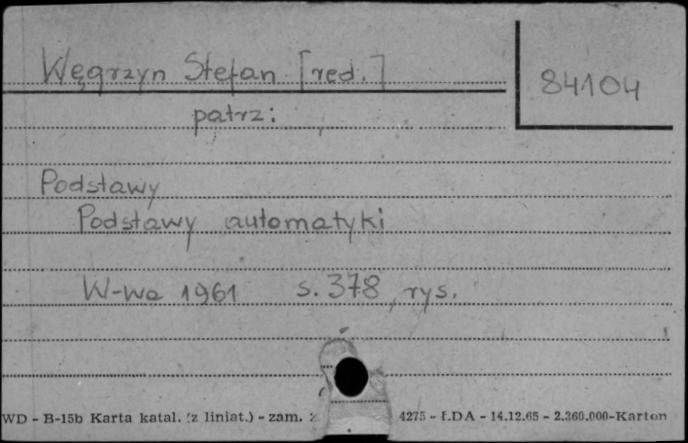 Węgrzyn Stefan [red.]
84104
patrz:
Podstawy
Podstawy automatyki
W-wa 1961 s. 378, rys.
WD - B-15b Karta katal. (z liniat.) - zam. 4275 - f.DA - 14.12.65 - 2.360.000-Karton